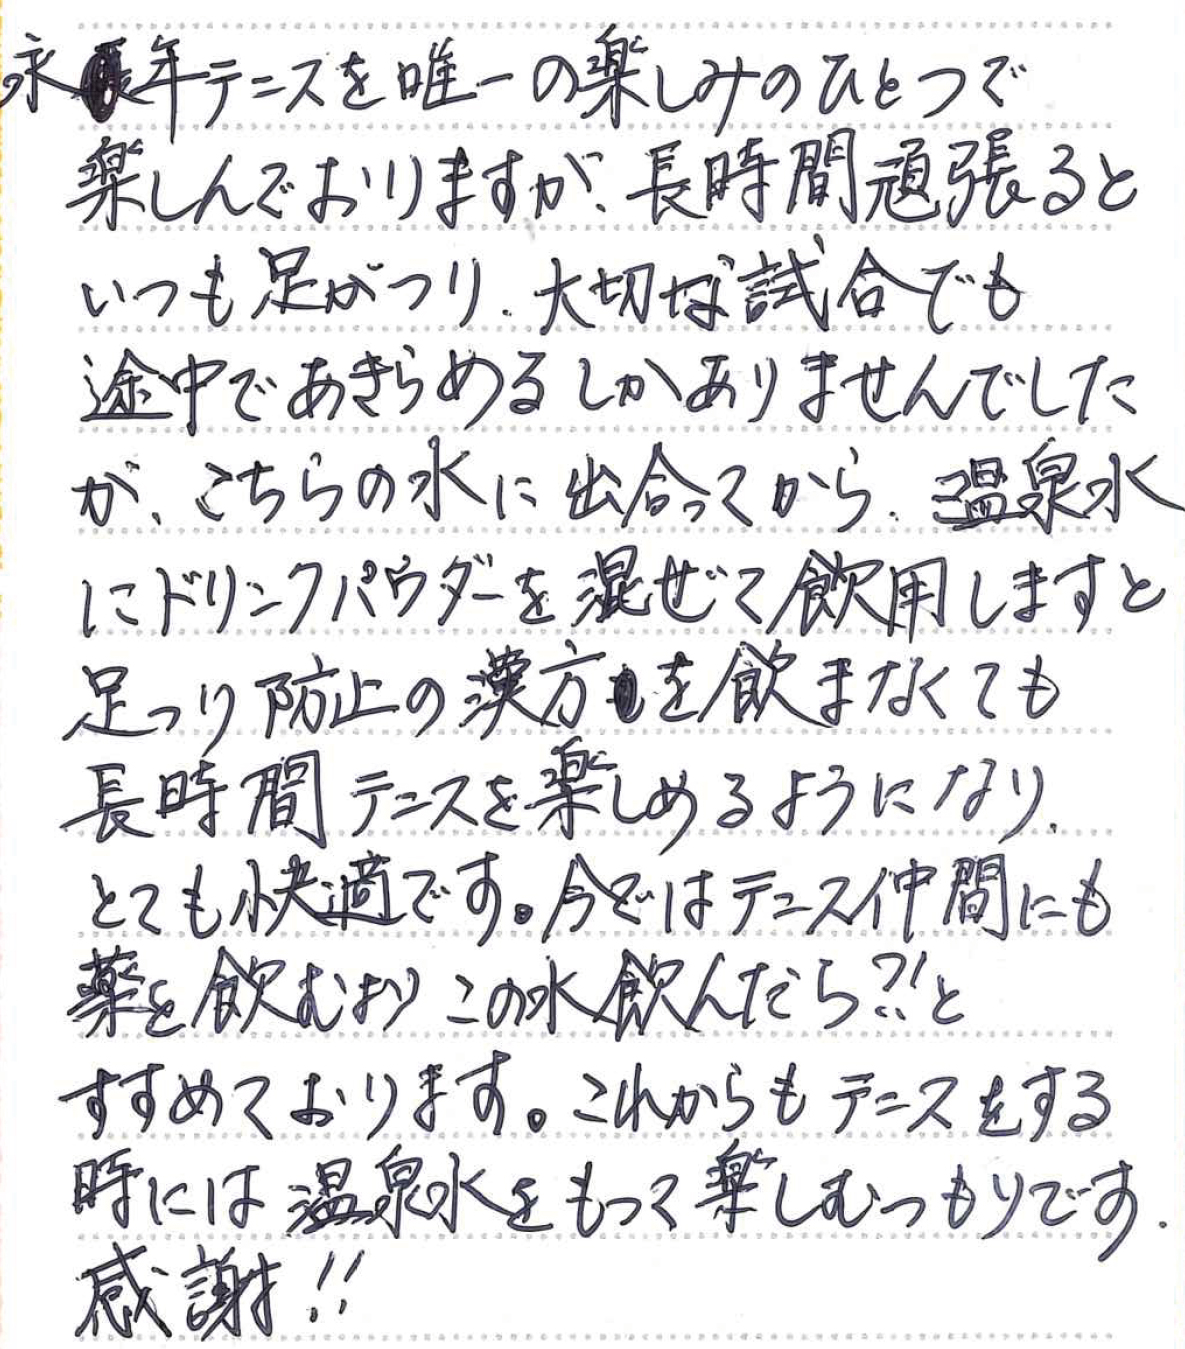 永年テニスを唯一の楽しみのひとつで
楽しんでおりますが、長時間頑張ると
いつも足がつり、大切な試合でも
途中であきらめるしかありませんでした
が、こちらの水に出合ってから、温泉水
にドリンクパウダーを混ぜて飲用しますと
足つり防止の漢方を飲まなくても
長時間テニスを楽しめるようになり、
とても快適です。今ではテニス仲間にも
薬を飲むよりこの水飲んだら?!と
すすめております。これからもテニスをする
時には温泉水をもって楽しむつもりです。
感謝!!